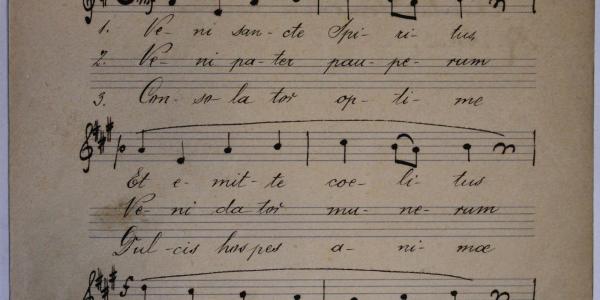 1. Ve- ni san- cte Spi- ri- tus,
2. Ve- ni pa- ter pau- pe- rum
3. Con- so- la tor op- ti- me
Et e- mit- te coe- li- tus
Ve- ni da tor mu- ne- rum
Dul- cis hospes a- ni- mæ